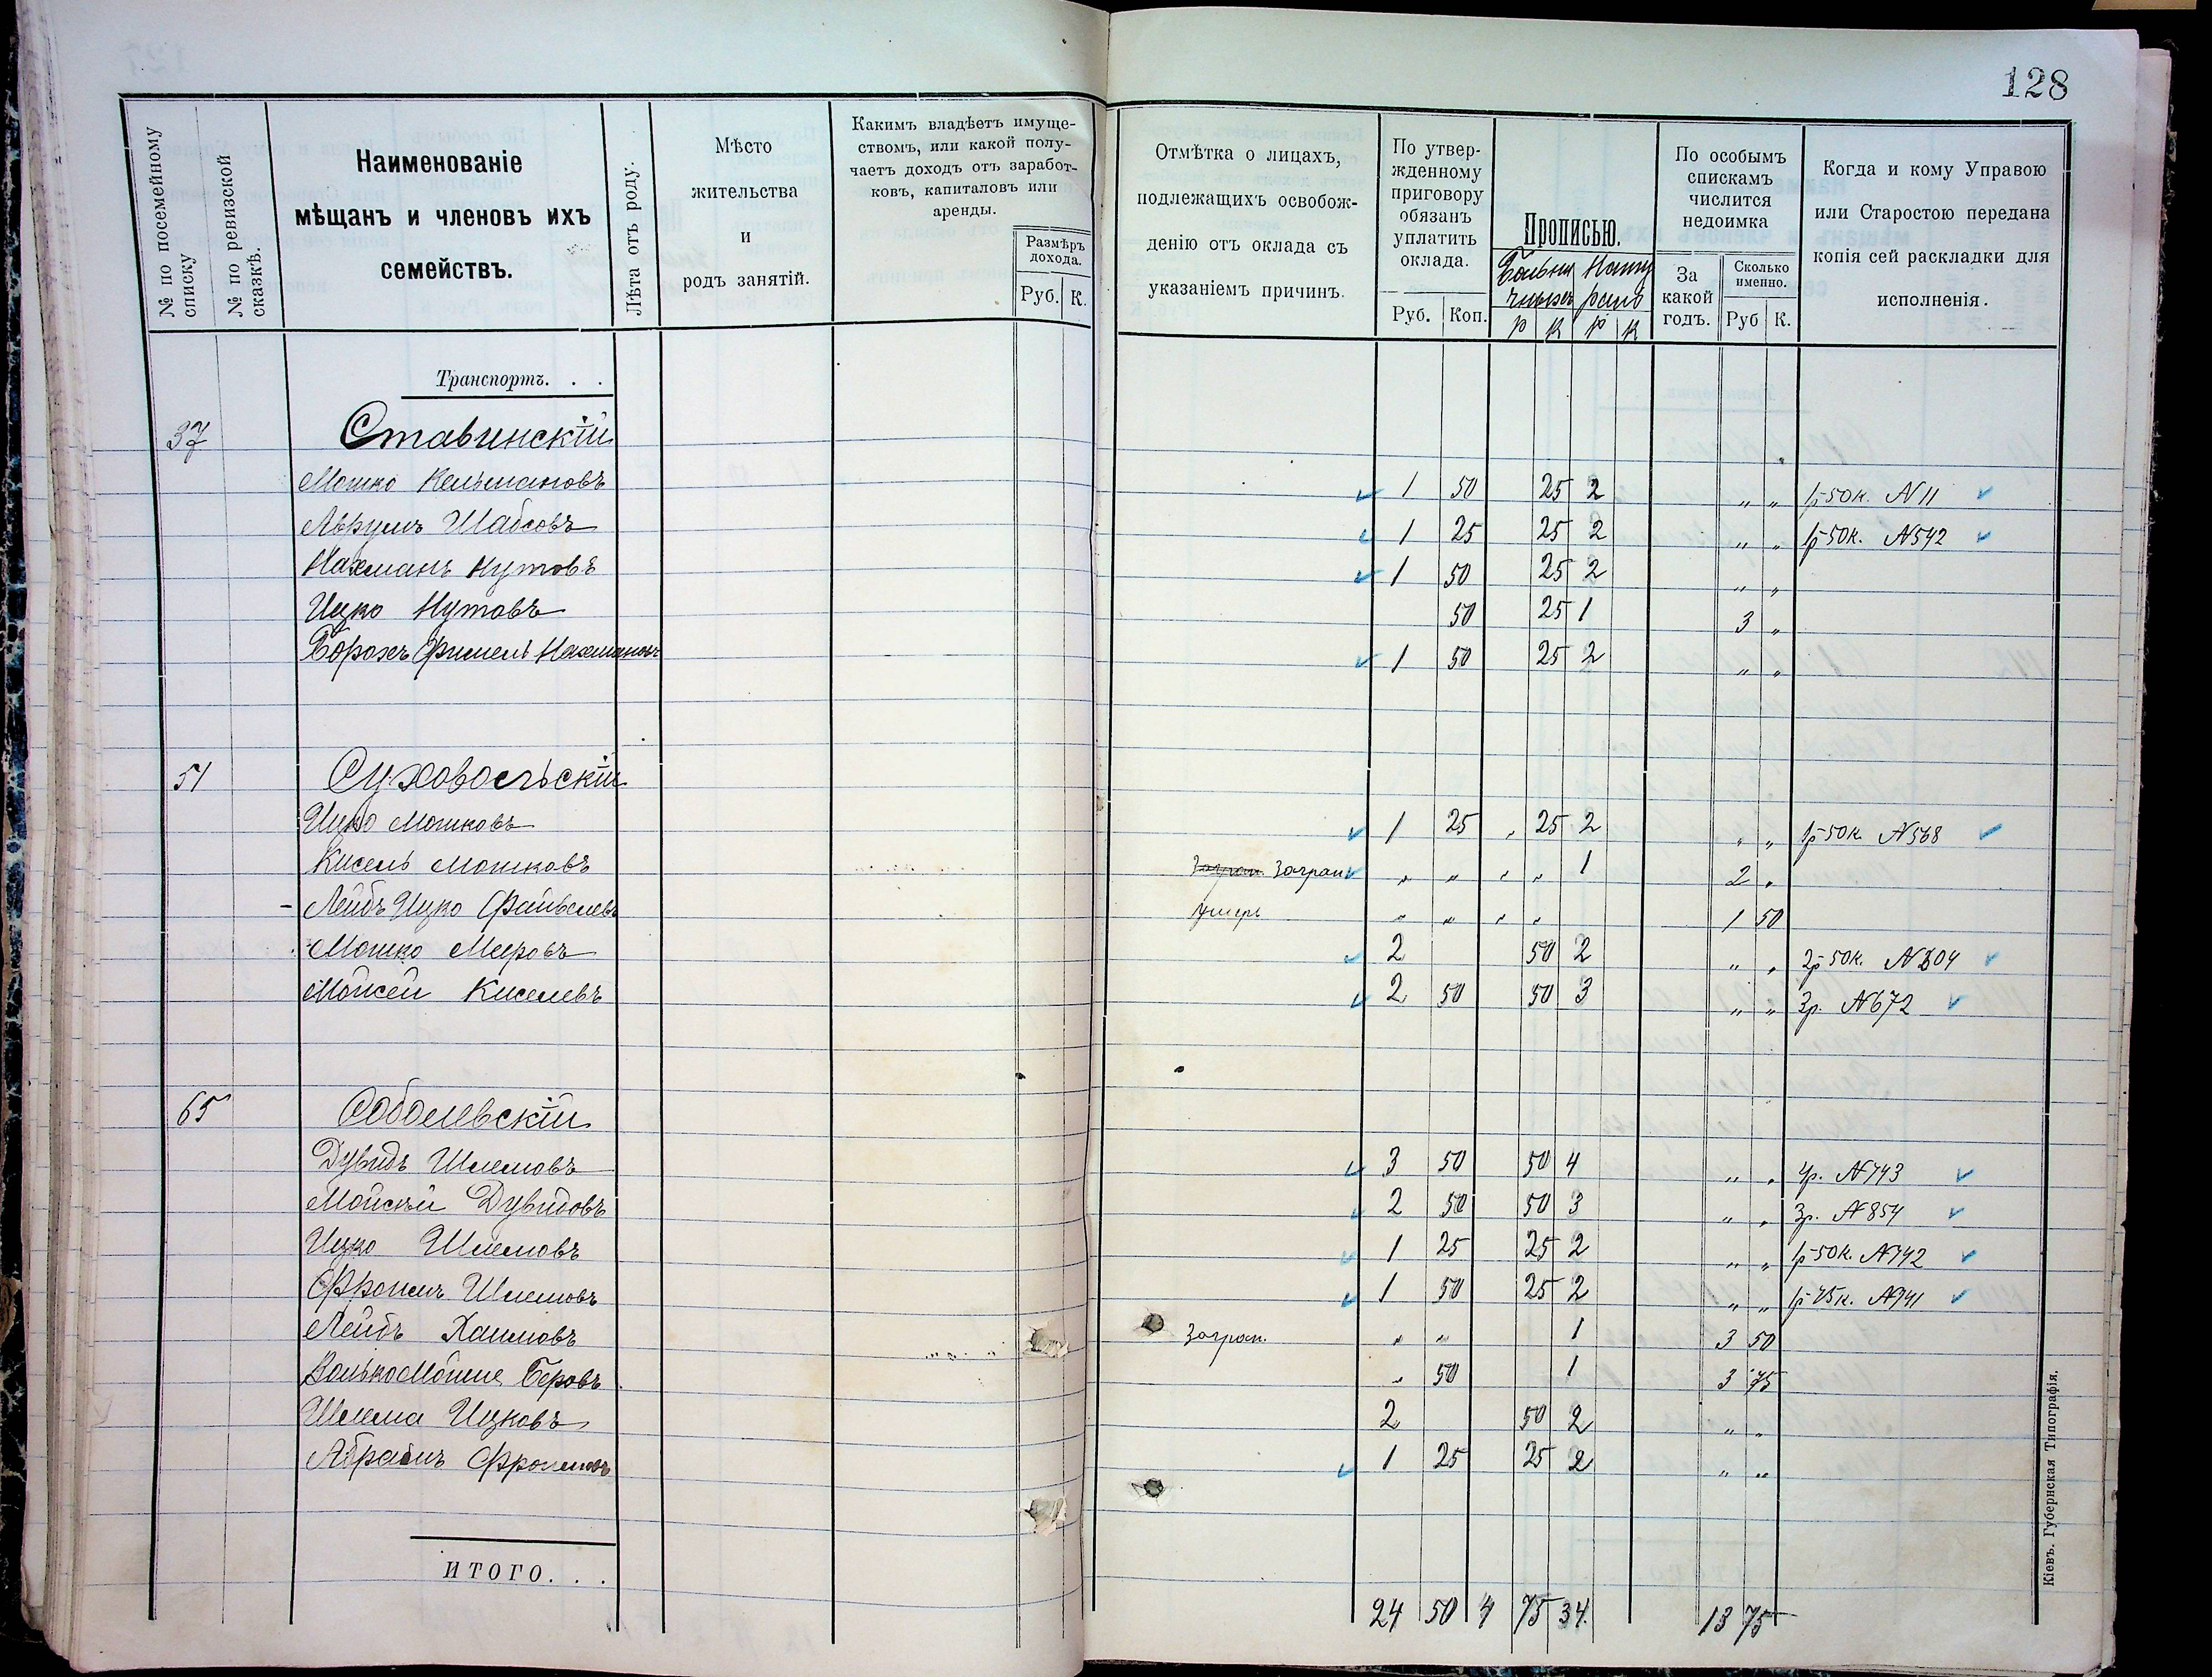 128
№ по посемейному списку
№ по ревизской сказкѣ.
Наименованіе
мѣщанъ и членовъ ихъ
семействъ.
Лѣта отъ роду.
Мѣсто
жительства
и
родъ занятій.
Какимъ владѣетъ имуще-
ствомъ, или какой полу-
чаетъ доходъ отъ заработ-
ковъ, капиталовъ или
аренды.
Размѣръ
дохода.
Руб. К.
Отмѣтка о лицахъ,
подлежащихъ освобож-
денію отъ оклада съ
указаніемъ причинъ.
По утвер-
жденному
приговору
обязанъ
уплатить
оклада.
Руб. Коп.
Прописью.
р к р к
По особымъ
спискамъ
числится
недоимка
За
какой
годъ.
Сколько
именно.
Руб К.
Когда и кому Управою
или Старостою передана
копія сей раскладки для
исполненія.
Транспортъ. . .
37 Ставинскій
Мошко Кельмановъ 1 50 25 2 " " 1р 50к. N 11
Аврумъ Шабсовъ 1 25 25 2 " " 1р 50к. N 542
Нахманъ Нутовъ 1 50 25 2 " "
Ицко Нутовъ 50 25 1 3 "
Борохъ Фишель Нахмановъ 1 50 25 2 " "
51 Суховольскій
Ицко Мошковъ 1 25 " 25 2 " " 1р 50к. N 568
Кисель Мошковъ Загран. Загран " " " " 1 2 "
- Лейбъ Ицко Файвелевъ умеръ " " " " 1 50
Мошко Мееровъ 2 50 2 " " 2р 50к. N 304
Мойсей Киселевъ 2 50 50 3 " " 3р. N 672
65 Соболевскій
Дувидъ Шлемовъ 3 50 50 4 " " 4р. N 743
Мойсей Дувидовъ 2 50 50 3 " " 3р. N 854
Ицко Шлемовъ 1 25 25 2 " " 1р 50к. N 742
Фроимъ Шлемовъ 1 50 25 2 " " 1р 75к. N 941
Лейбъ Хаимовъ Загран. " " 1 3 50
Волько Мойше Беровъ " 50 1 3 75
Шлема Ицковъ 2 50 2 " "
Абрамъ Фроимовъ 1 25 25 2 " "
ИТОГО. . .
24 50 4 75 34. 13 75
Кіевъ. Губернская Типографія.